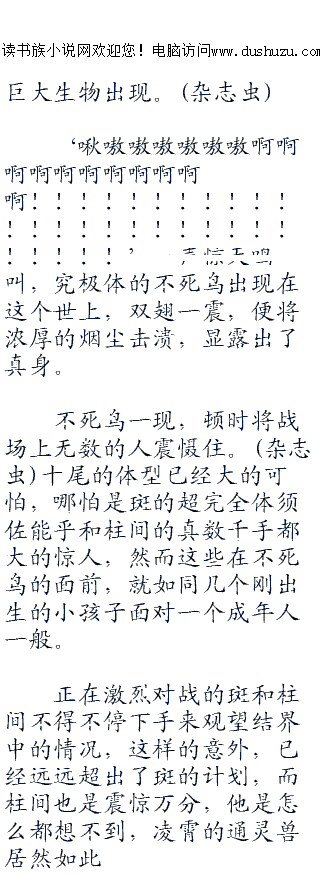 读书族小说网欢迎您！电脑访问www.dushuzu.com
巨大生物出现。(杂志虫)
‘啾嗷嗷嗷嗷嗷嗷啊啊
啊啊啊啊啊啊啊啊
啊！！！！！！！！！！！
！！！！！！！！！！！！
！！！！！’ 一声惊天鸣
叫，究极体的不死鸟出现在
这个世上，双翅一震，便将
浓厚的烟尘击溃，显露出了
真身。
不死鸟一现，顿时将战
场上无数的人震慑住。(杂志
虫)十尾的体型已经大的可
怕，哪怕是斑的超完全体须
佐能乎和柱间的真数千手都
大的惊人，然而这些在不死
鸟的面前，就如同几个刚出
生的小孩子面对一个成年人
一般。
正在激烈对战的斑和柱
间不得不停下手来观望结界
中的情况，这样的意外，已
经远远超出了斑的计划，而
柱间也是震惊万分，他是怎
么都想不到，凌霄的通灵兽
居然如此